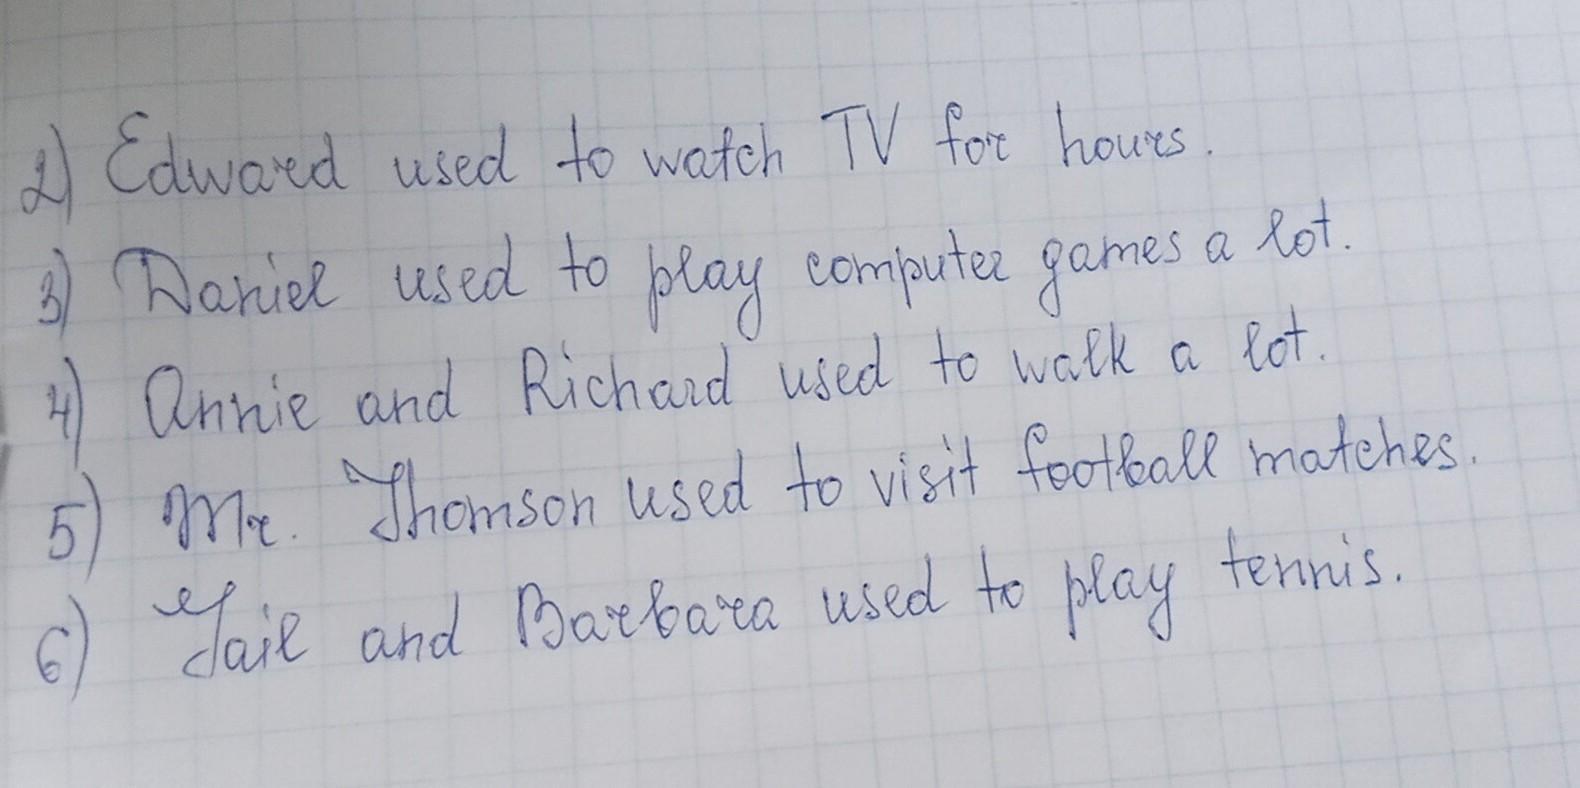 2) Edward used to watch TV for hours.
3) Daniel used to play computer games a lot.
4) Annie and Richard used to walk a lot.
5) Mr. Thomson used to visit football matches.
6) Jail and Barbara used to play tennis.